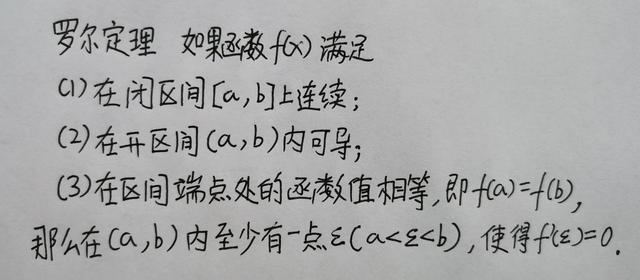 罗尔定理 如果函数f(x)满足
(1)在闭区间[a,b]上连续;
(2)在开区间(a,b)内可导;
(3)在区间端点处的函数值相等,即f(a)=f(b),
那么在(a,b)内至少有一点ε(a<ε<b),使得f'(ε)=0.